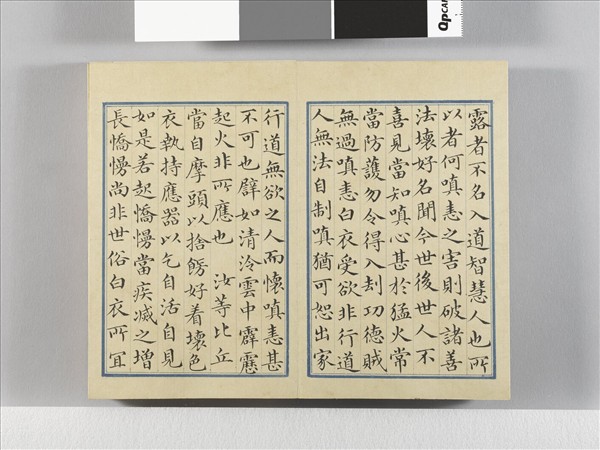 露者不名入道智慧人也所
以者何嗔恚之害則破諸善
法壞好名聞今世後世人不
喜見當知嗔心甚於猛火常
當防護勿令得入刦功德賊
無過嗔恚白衣受欲非行道
人無法自制嗔猶可恕出家
行道無欲之人而懷嗔恚甚
不可也譬如清泠雲中霹靂
起火非所應也 汝等比丘
當自摩頭以捨餝好着壞色
衣執持應器以乞自活自見
如是若起憍慢當疾滅之增
長憍慢尚非世俗白衣所冝
QpCARD